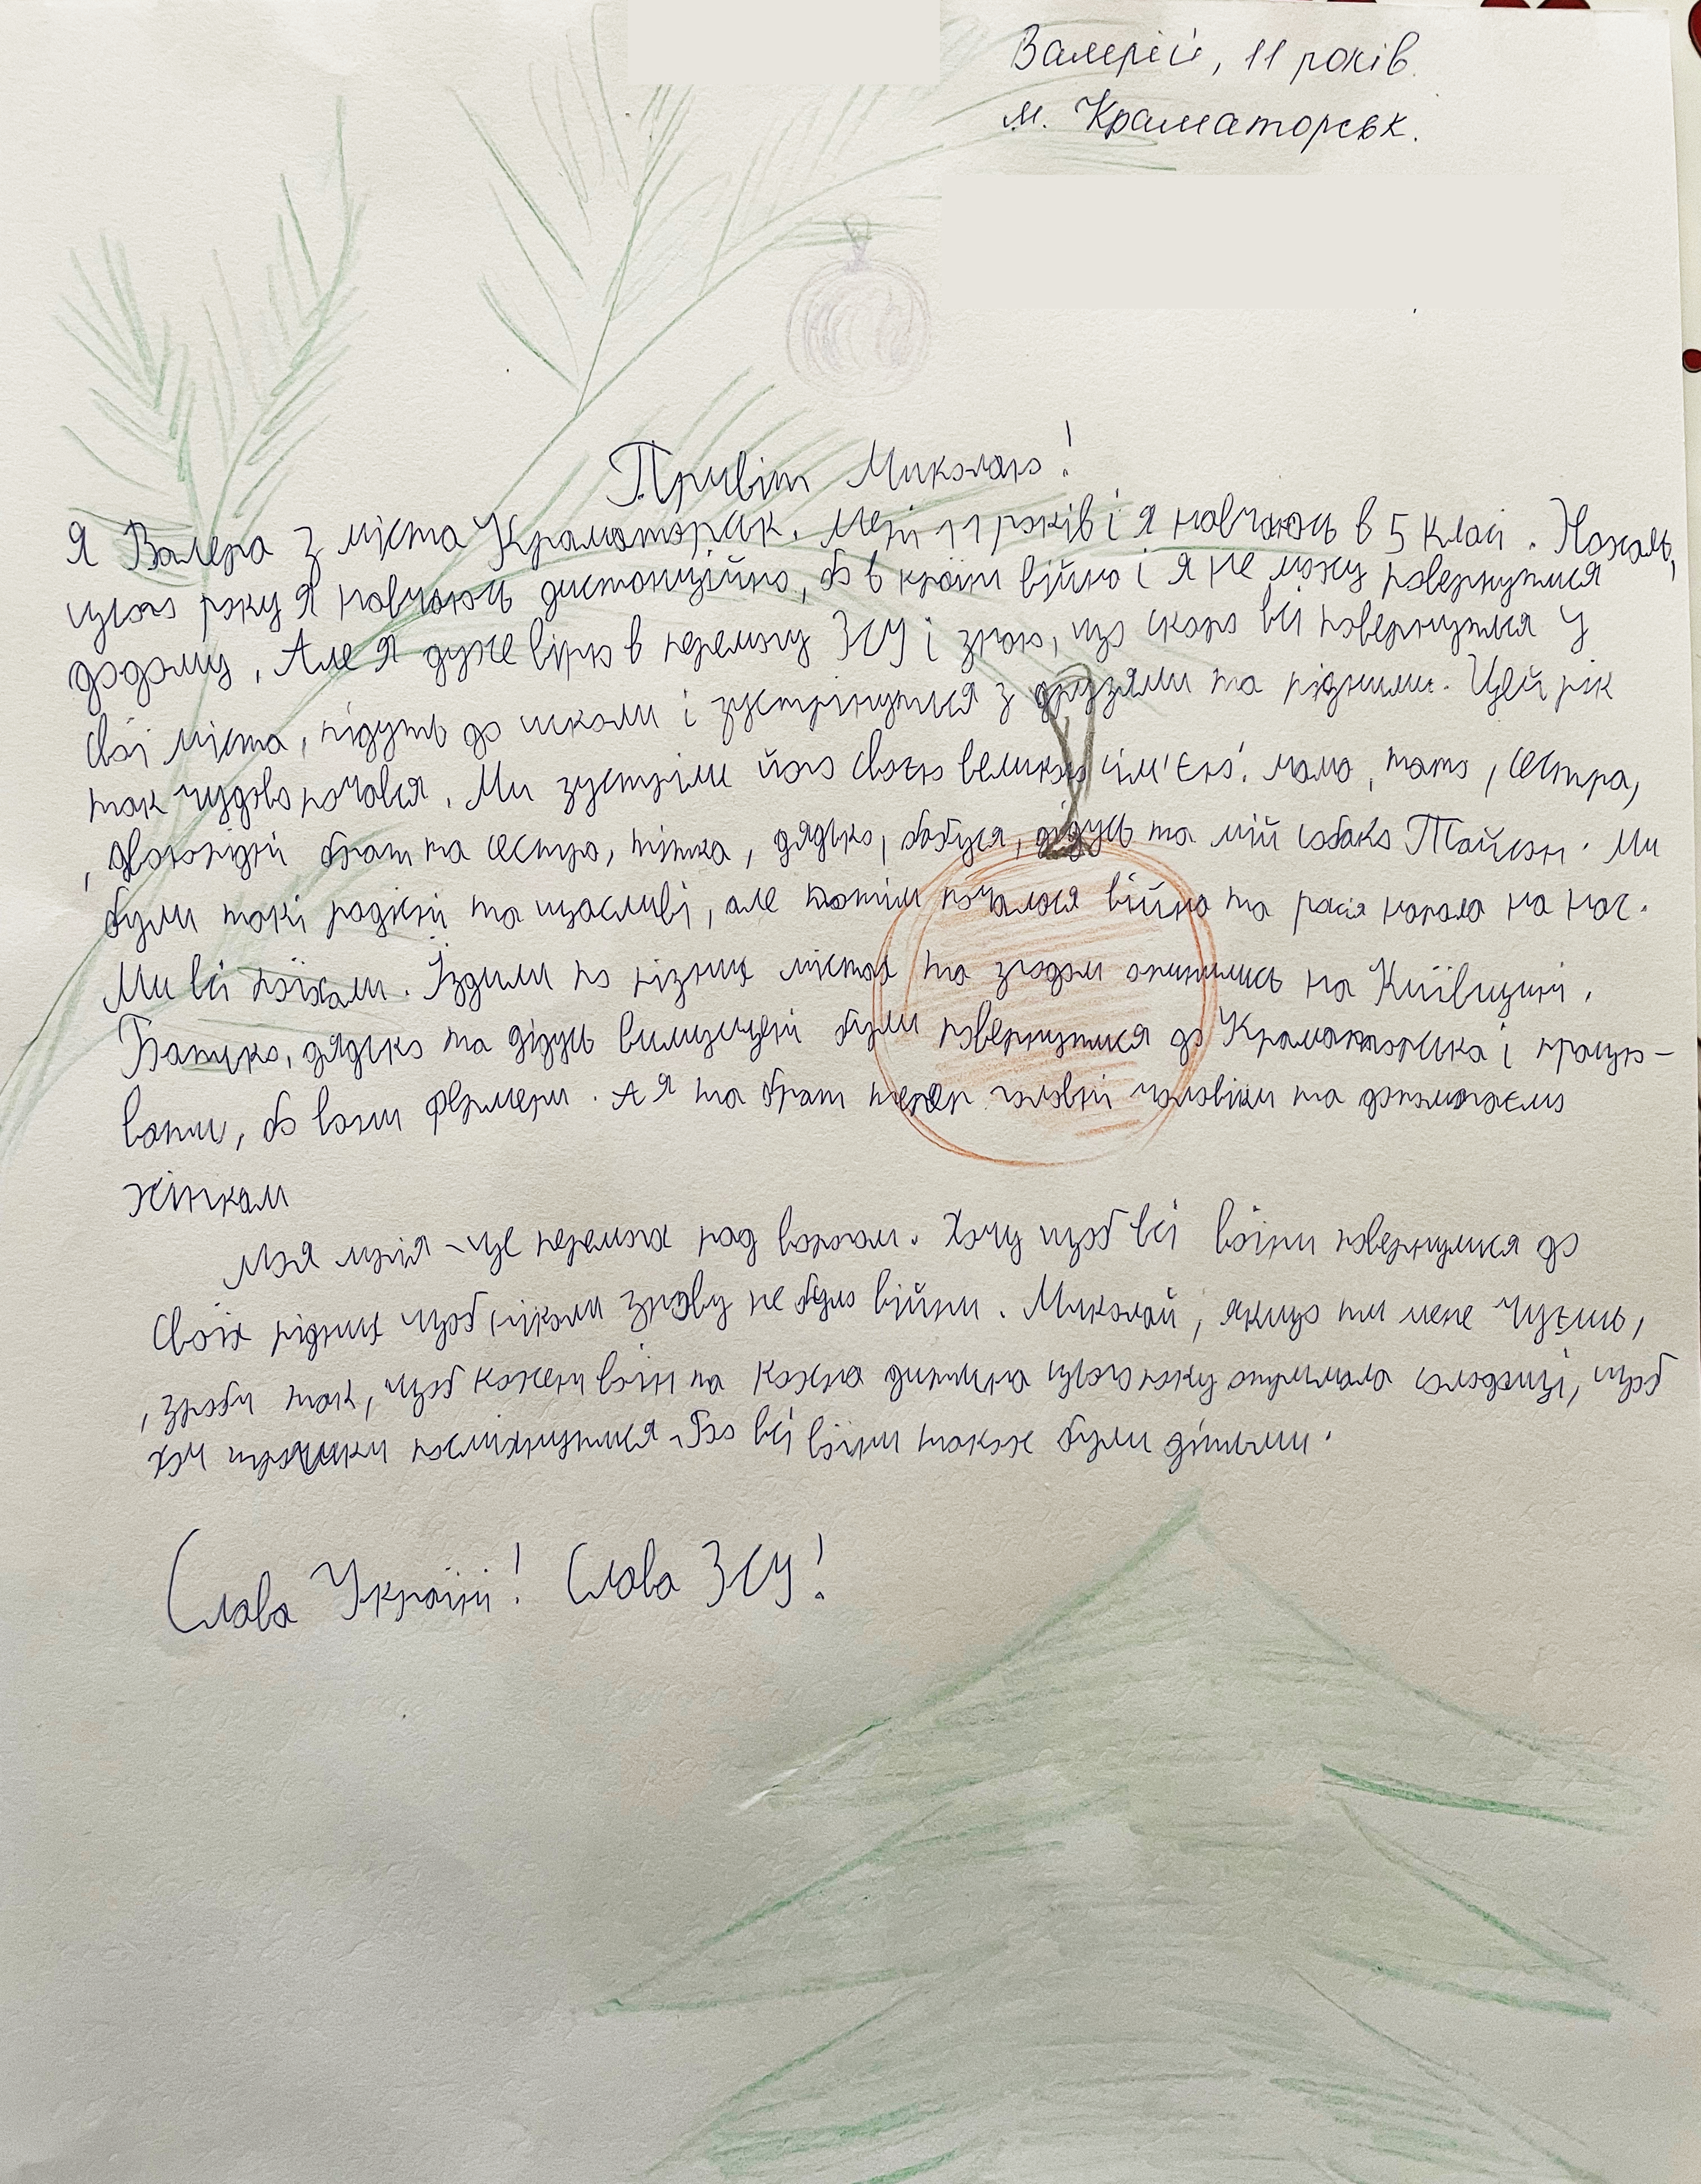 Валерій, 11 років.
м. Краматорськ.
Привіт Миколаю!
Я Валера з міста Краматорськ. Мені 11 років і я навчаюсь в 5 класі. Нажаль,
цього року я навчаюсь дистанційно, бо в країні війна і я не можу повернутися
додому. Але я дуже вірю в перемогу ЗСУ і знаю, що скоро всі повернуться у
свої міста, підуть до школи і зустрінуться з друзями та рідними. Цей рік
так чудово почався. Ми зустріли його своєю великою сім'єю: мама, тато, сестра,
, двоюрідні брат та сестра, тітка, дядько, бабуся, дідусь та мій собака Тайсон. Ми
були такі радісні та щасливі, але потім почалася війна та росія напала на нас.
Ми всі поїхали. Їздили по різних містах та згодом опинились на Київщині.
Батько, дядько та дідусь вимушені були повернутися до Краматорська і працю-
вати, бо вони фермери. А я та брат тепер головні чоловіки та допомагаємо
жінкам
Моя мрія - це перемога над ворогом. Хочу щоб всі воїни повернулися до
своїх рідних щоб ніколи знову не було війни. Миколай, якщо ти мене чуєш,
, зроби так, щоб кожен воїн та кожна дитина цього року отримала солодощі, щоб
хоч трошки посміхнутися. Бо всі воїни також були дітьми.
Слава Україні! Слава ЗСУ!